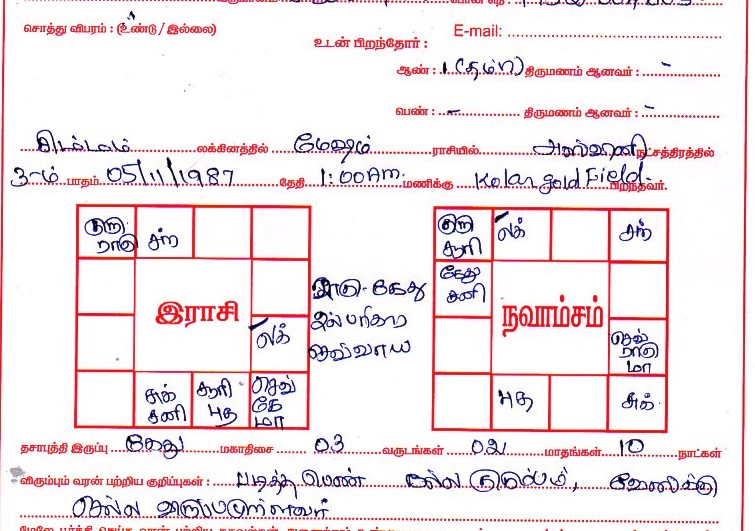 சொத்து விபரம் : (உண்டு / இல்லை)
E-mail:
உடன் பிறந்தோர் :
ஆண் : 1 (தம்பி) திருமணம் ஆனவர் : -
பெண் : - திருமணம் ஆனவர் : -
சிம்மம் லக்கினத்தில் மேஷம் ராசியில் அஸ்வினி நட்சத்திரத்தில்
3-ம் பாதம் 05/11/1987 தேதி 1:00Am. மணிக்கு Kolar gold Field. பிறந்தவர்.
குரு ராகு சந் குரு சூரி லக் சந்
கேது சனி
இராசி ராகு-கேது நவாம்சம்
லக் செவ் ராகு மா
சுக் சனி சூரி புத செவ் கே மா புத சுக்
தசாபுத்தி இருப்பு கேது மகாதிசை 03 வருடங்கள் 02 மாதங்கள் 10 நாட்கள்
விரும்பும் வரன் பற்றிய குறிப்புகள் : படித்த பெண் நல்ல குடும்பம், வேலைக்கு
செல்ல விருப்பமுள்ளவர்